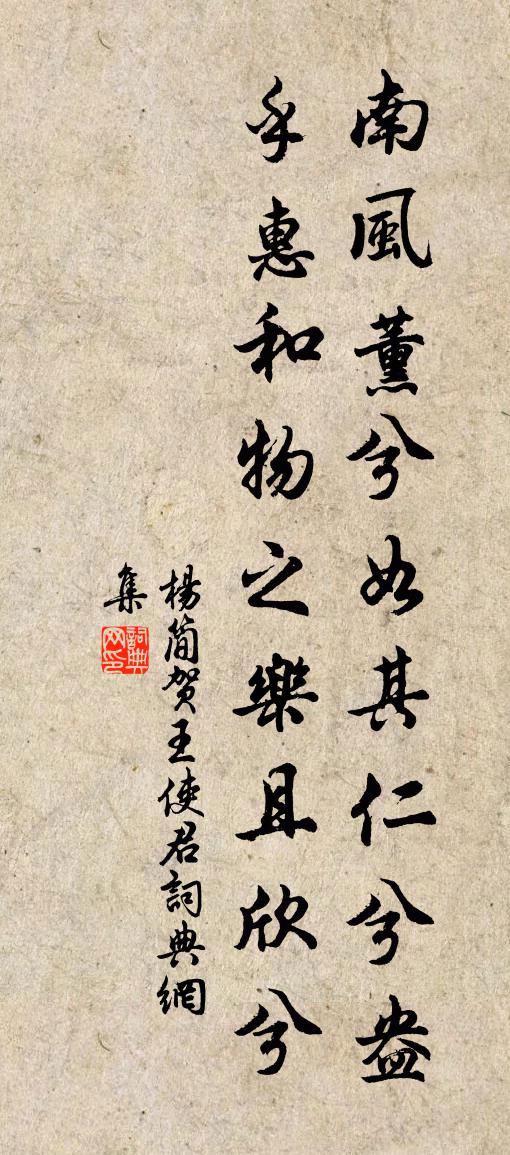 南風薰兮如其仁兮盎
乎惠和物之樂且欣兮
楊簡賀王使君詞典網
集
詞典網印